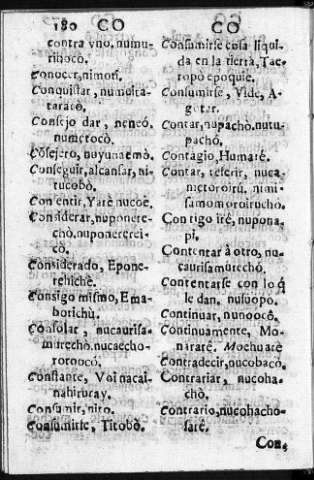 180 CO
contra vno, numu-
rihoco.
Conocer, nimori.
Conquistar, numoita-
taracò.
Consejo dar, neneó.
numetocò.
Cōsejero, nuyunaemò.
Conseguir, alcansar, ni-
tucobò.
Consentir, Yarè nucoè.
Considerar, nuponere-
chò. nuponererei-
cò.
Considerado, Epone-
rehichè.
Consigo mismo, Ema-
borichù.
Cōsolar, nucaurisa-
mirechò. nucaecho-
roroocò.
Constante, Voi nacai-
nahiruray.
Consumir, nito.
Consumirse, Titobò.
CO
Consumirse cosa liqui-
da en la tierra, Tae-
ropò epoquie.
Consumirse, Vide, A-
gotar.
Contar, nupachò. nutu-
pachò.
Contagio, Humarè.
Contar, referir, nuca-
metoroirù. nimi-
samomoroiruchò.
Contigo irè, nupona-
pi.
Contentar à otro, nu-
caurisamurechò.
Contentarse con lo q̃
le dan. nusuopo.
Continuar, nunoocò.
Continuamente, Mo-
nararè. Mochuarè
Contradecir, nucobacò.
Contrariar, nucoha-
chò.
Contrario, nucohacho-
sarè.
Con-